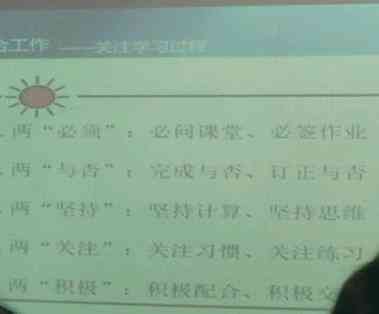 合工作 ——关注学习过程
两“必须”：必问课堂、必签作业
两“与否”：完成与否、订正与否
两“坚持”：坚持计算、坚持思维
两“关注”：关注习惯、关注练习
两“积极”：积极配合、积极交